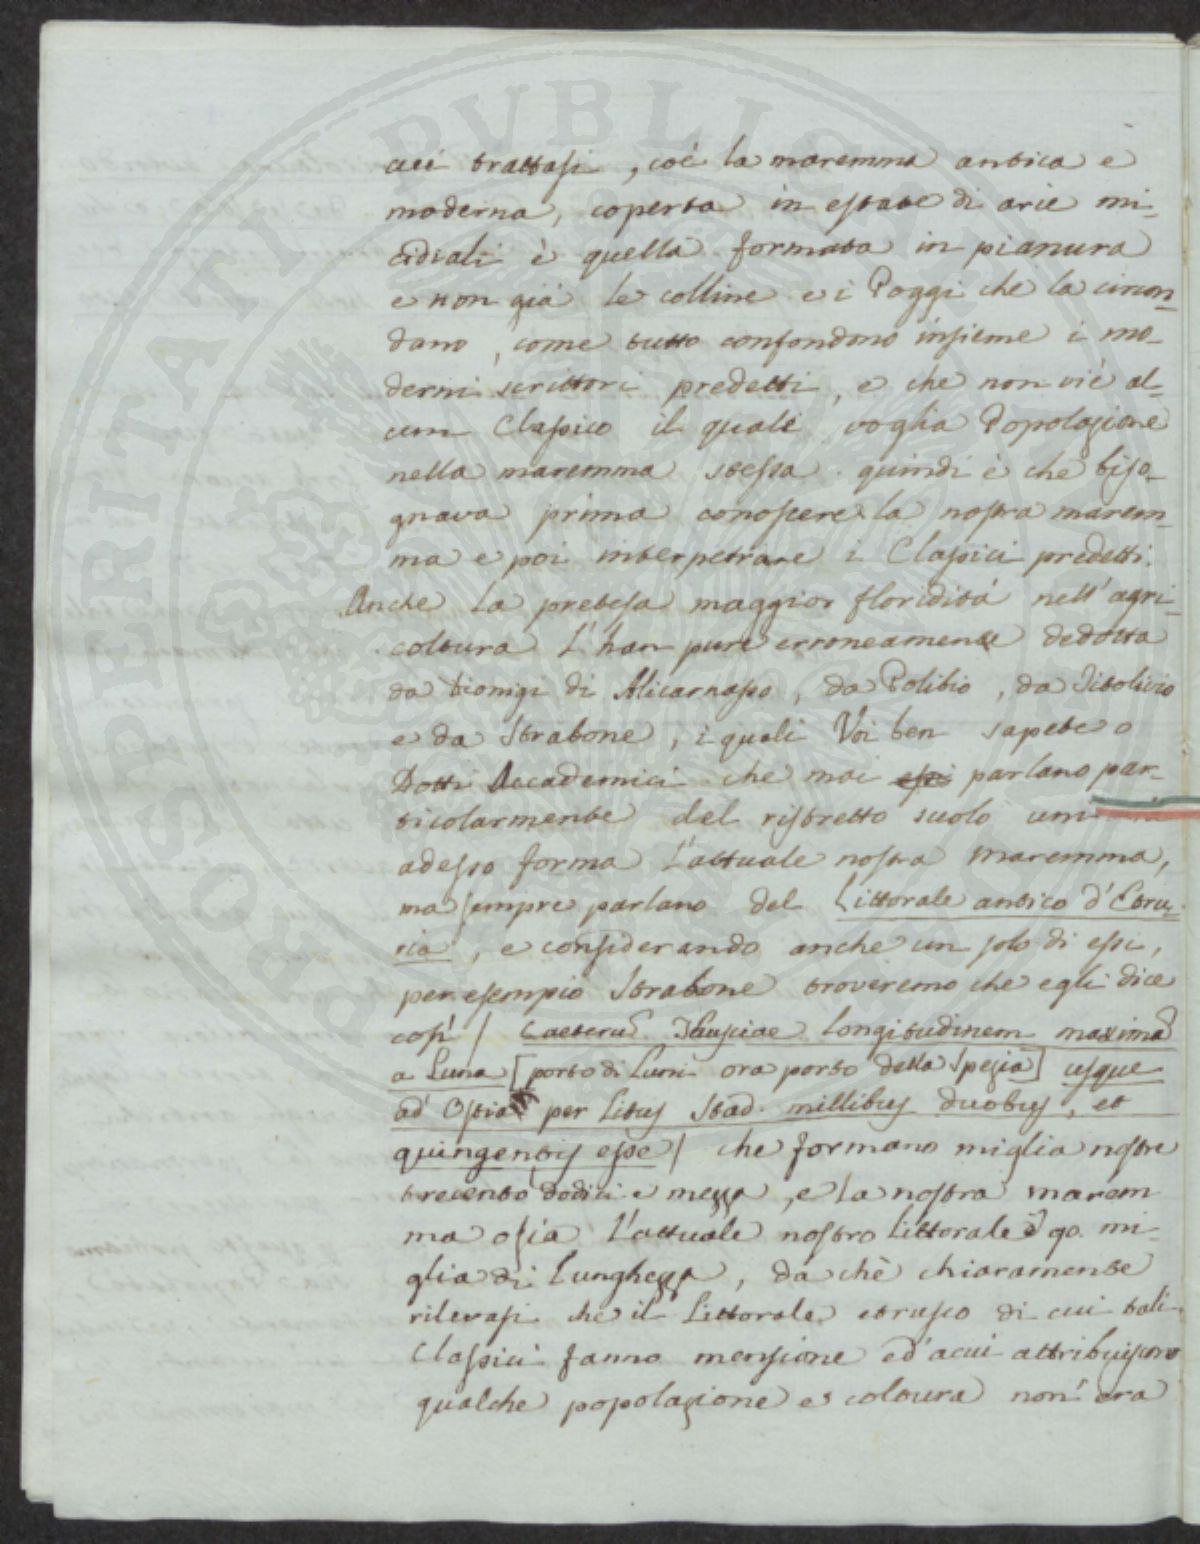 cui trattasi, cioè la maremma antica e
moderna, coperta in estate di arie mi-
cidiali è quella formata in pianura
e non già le colline e i Poggi che la circon-
dano, come tutto confondono insieme i mo-
derni scrittori predetti, e che non vi è al-
cun Classico il quale voglia Popolazione
nella maremma stessa. quindi è che biso-
gnava prima conoscere la nostra marem-
ma e poi interpetrare i Classici predetti.
Anche la pretesa maggior floridità nell'agri-
coltura l'han pure erroneamente dedotta
da Dionigi di Alicarnasso, da Polibio, da Titolivio
e da Strabone, i quali Voi ben sapete o
Dotti Accademici che mai essi parlano par-
ticolarmente del ristretto suolo
adesso forma l'attuale nostra maremma,
ma sempre parlano del Littorale antico d'Etru-
ria, e considerando anche un solo di essi,
per esempio Strabone troveremo che egli dice
così / Caeterũ Thusciae longitudinem maximã
a Luna [porto di Luni ora porto della Spezia] usque
ad Ostia per litus stad. millibus duobus, et
quingentis esse / che formano miglia nostre
trecento dodici e mezza, e la nostra marem
ma osia l'attuale nostro Littorale è 90. mi-
glia di lunghezza, da chè chiaramente
rilevasi che il Littorale etrusco di cui tali
Classici fanno menzione ed' a cui attribuiscono
qualche popolazione e coltura non era